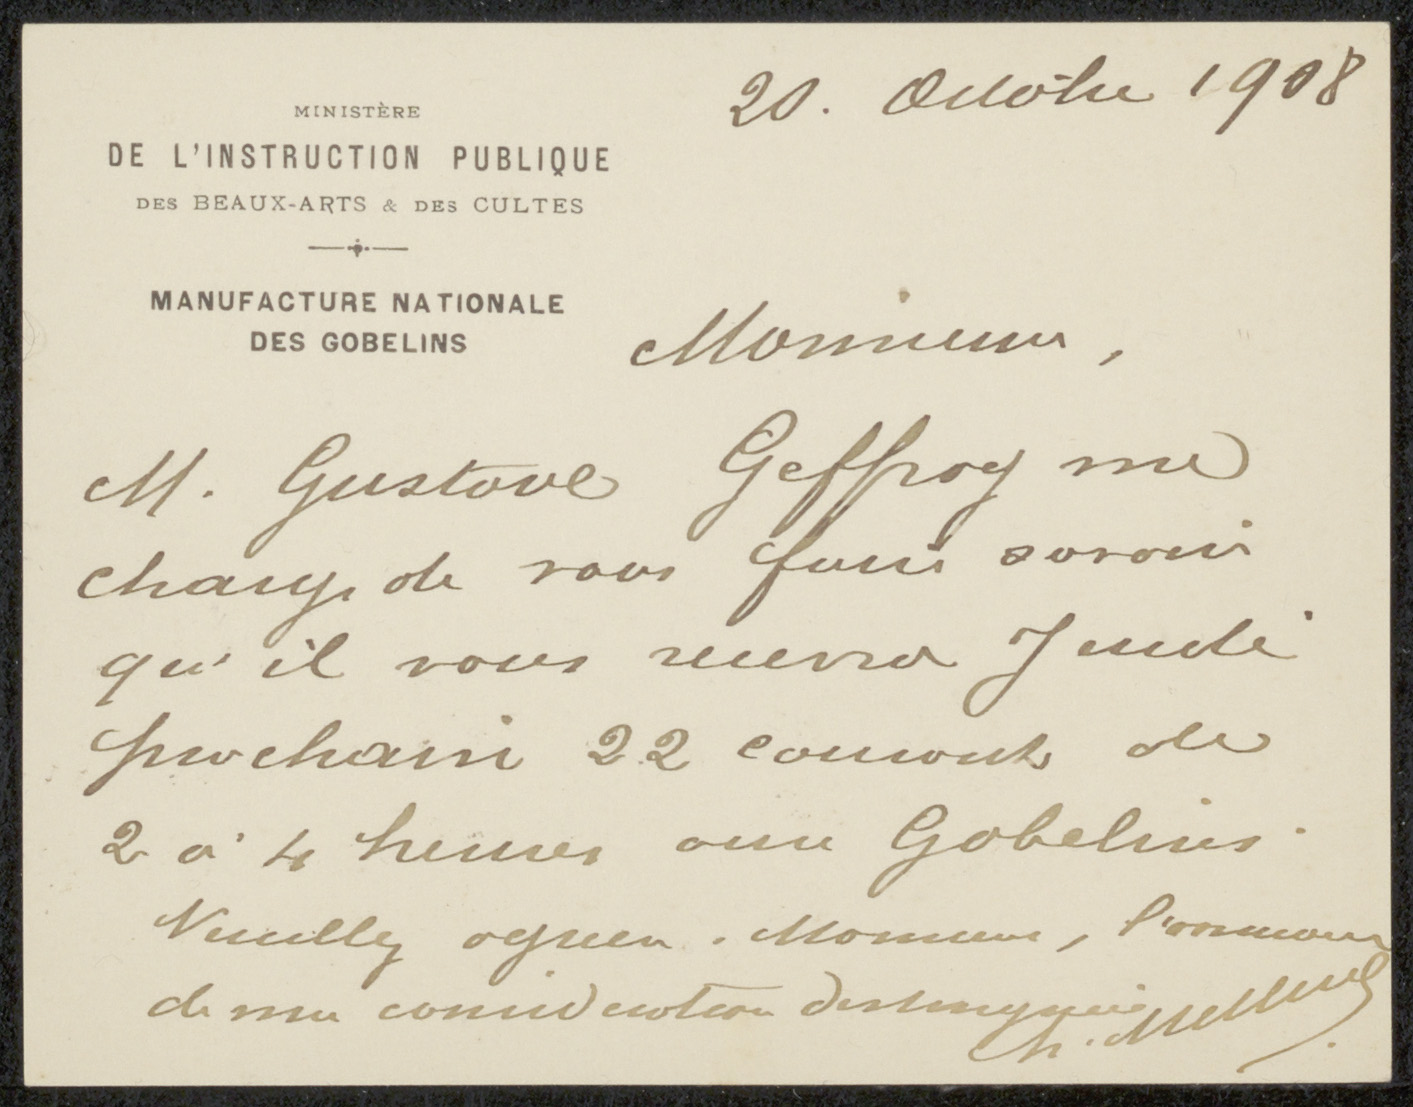 20. Octobre 1908
MINISTÈRE
DE L'INSTRUCTION PUBLIQUE
DES BEAUX-ARTS & DES CULTES
MANUFACTURE NATIONALE
DES GOBELINS
Monsieur,
M. Gustave Geffroy me
charge de vous faire savoir
qu'il vous recevra Jeudi
prochain 22 courant de
2 à 4 heures aux Gobelins.
Veuillez agréer, Monsieur, l'assurance
de ma considération distinguée